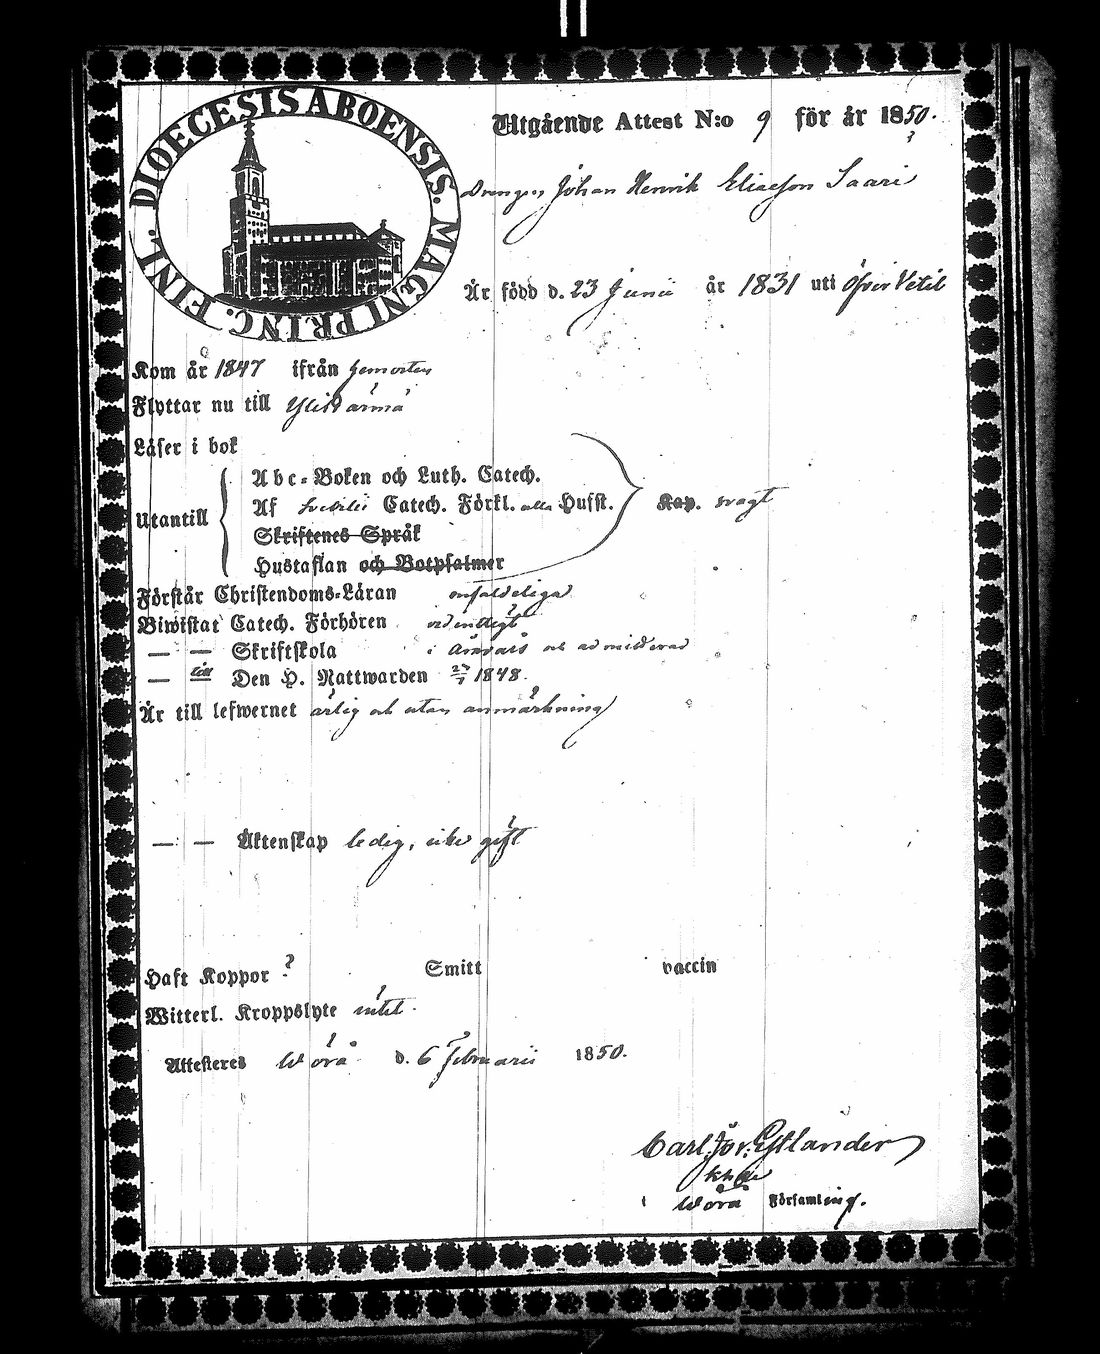 DIOECESIS ABOENSIS. MAGNI PRINC. FINL.
Utgående Attest N:o 9 för år 1850.
Drengen Johan Henrik Eliaeson Saari
Är född d. 23 Junii år 1831 uti Öfver Vetil
Kom år 1847 ifrån hemorten
Flyttar nu till Ylihärmä
Läser i bok
Abc-Boken och Luth. Catech.
Utantill Af Svebilii Catech. Förkl. alla Husst. Kap. svagt
Skriftenes Språk
Hustaflan och Botpsalmer
Förstår Christendoms-Läran enfaldeliga
Biwistat Catech. Förhören ordentligt
— — Skriftskola i Änväis och admitterad
— till Den H. Nattwarden 23/7 1848.
Är till lefwernet ärlig och utan anmärkning
— — Äktenskap ledig, icke gift
Haft Koppor ? Smitt vaccin
Witterl. Kroppslyte intet.
Attesteres Wörå d. 6 Februarii 1850.
Carl Estlander
i Wörå Församling.